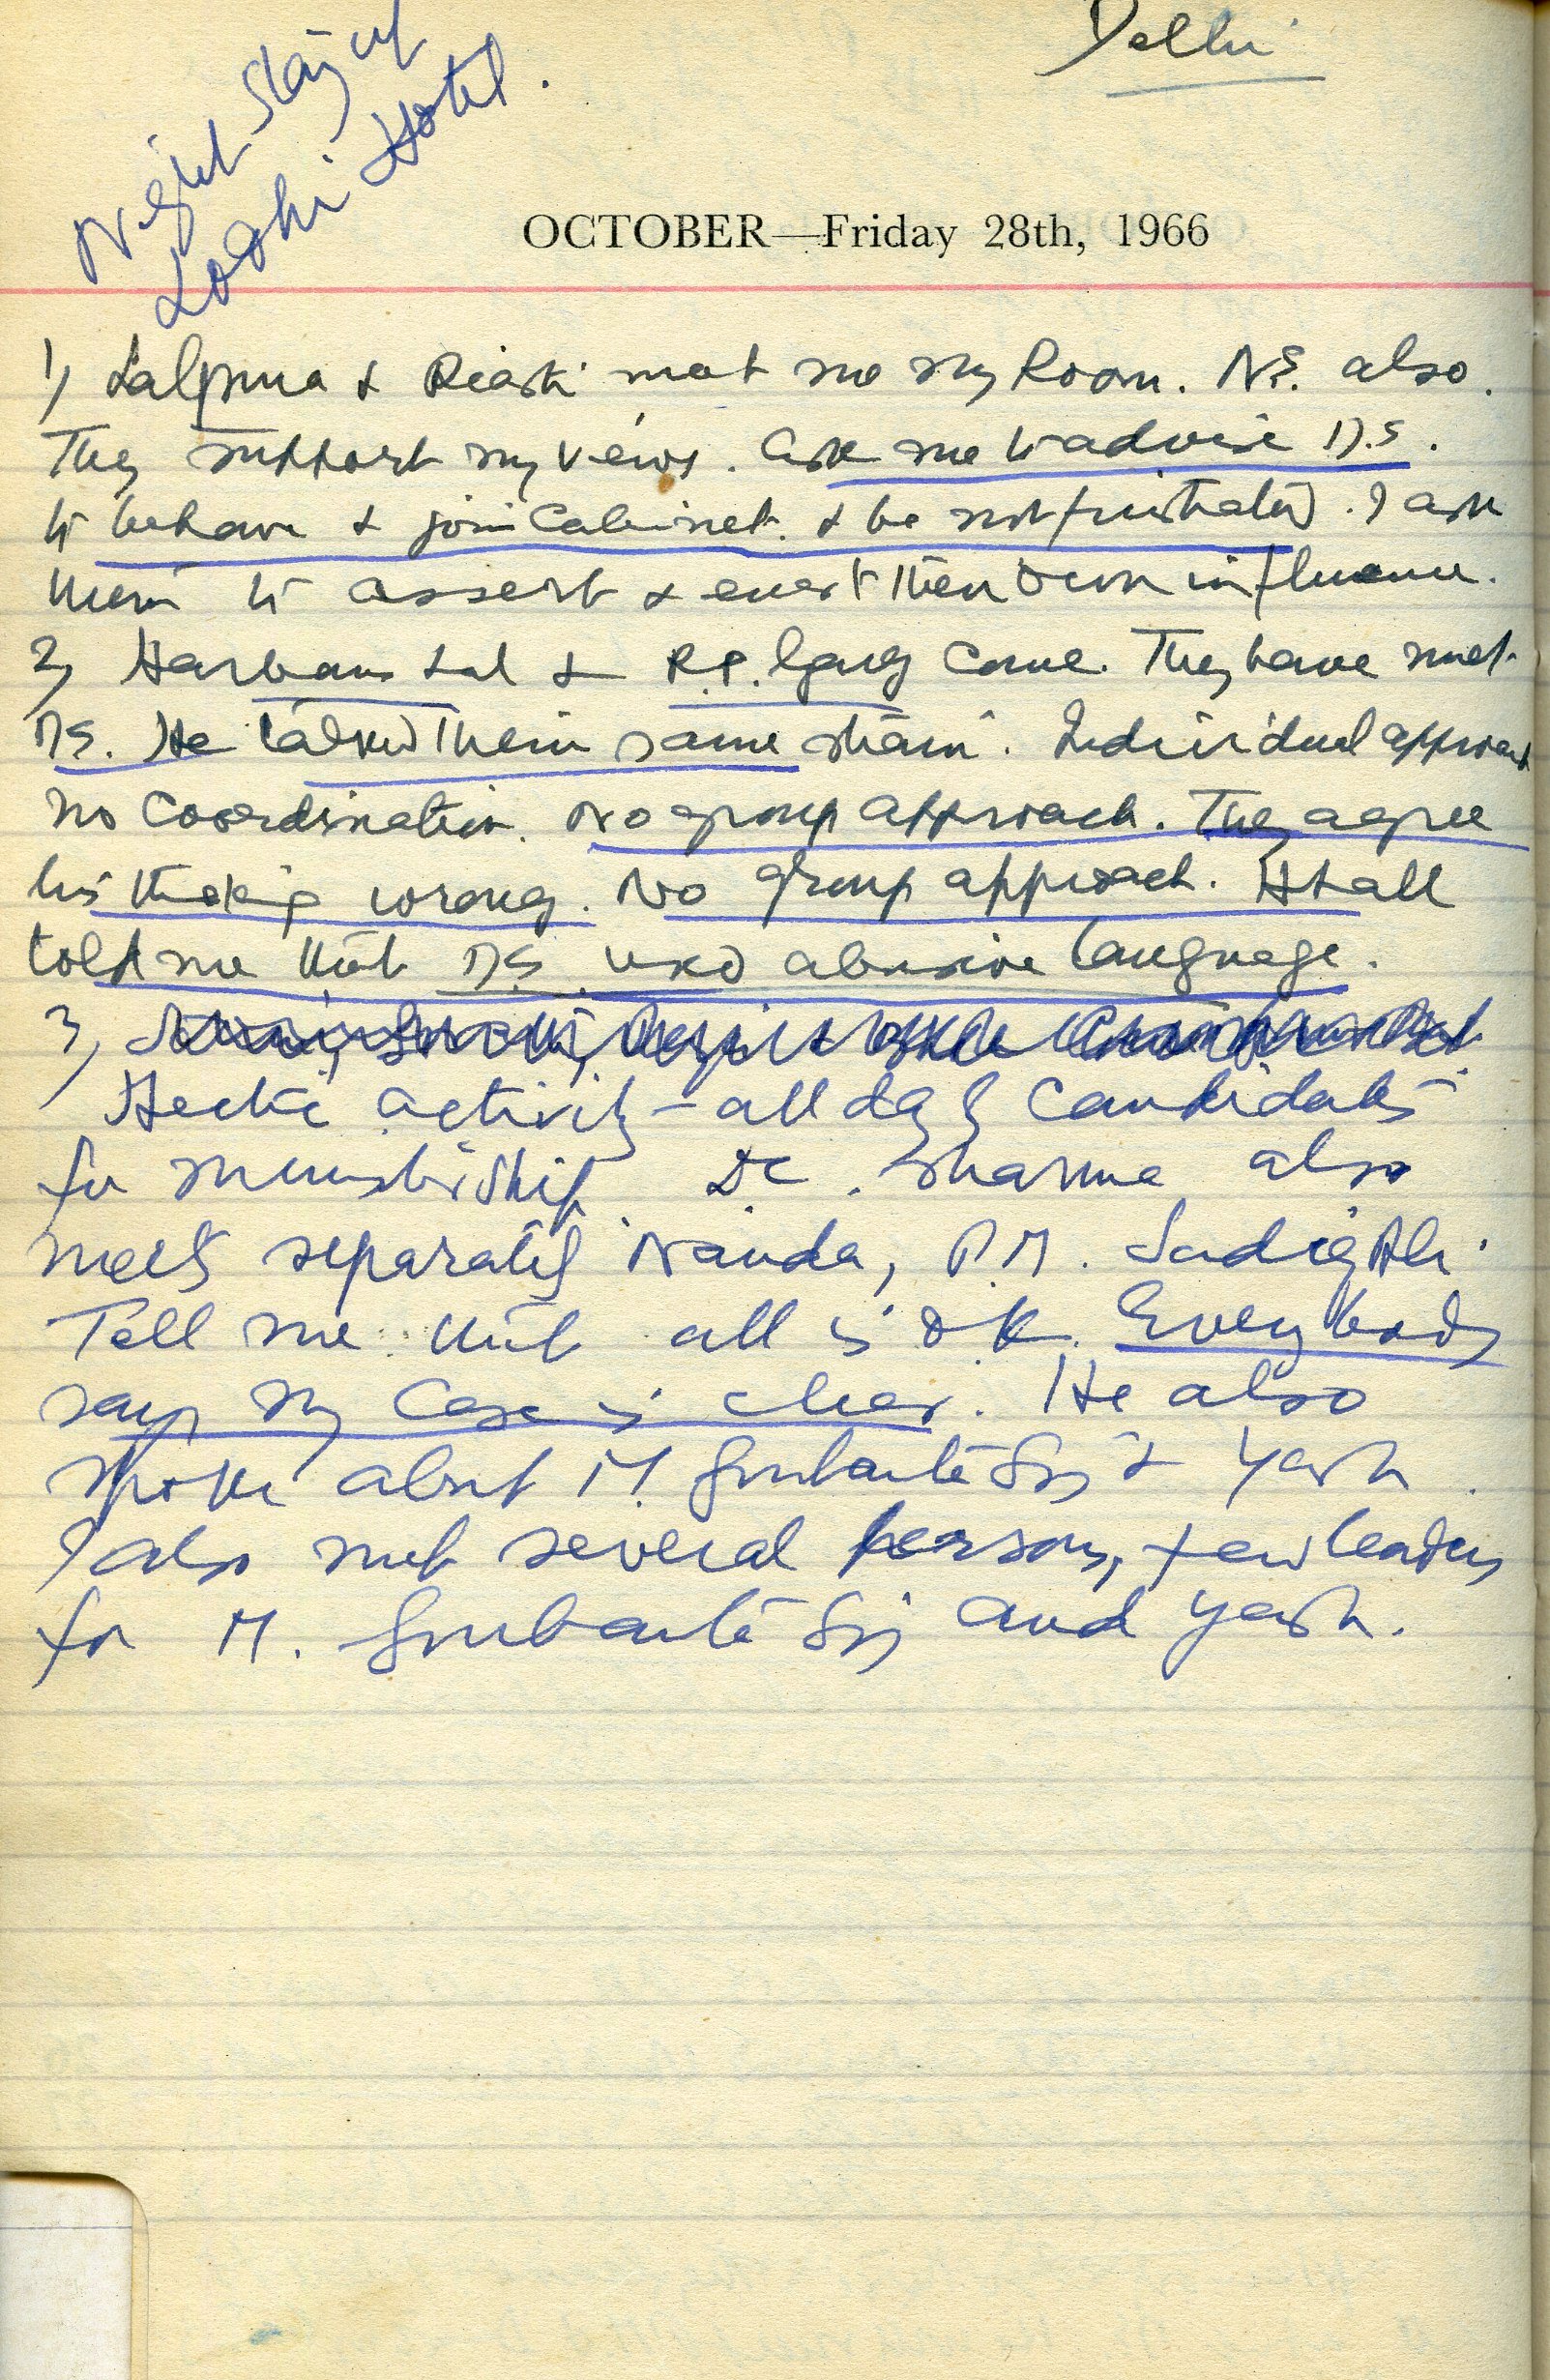 Delhi
Night stay at
Lodhi Hotel.
OCTOBER—Friday 28th, 1966
1) Lalpura & Riasti met me my Room. N.S. also.
They support my views. Ask me to advise D.S.
to behave & join Cabinet. & be not frustrated. I ask
them to assert & exert their own influence.
2) Harbans Lal & R.P. Garg came. They have met
D.S. He talked them same strain. Individual approach
no Coordination. No group approach. They agree
his thinking wrong. No group approach.
told me that D.S. used abusive language.
3)
Hectic activity - all day of Candidates
for ministership. D.C. Sharma also
meets separately Nanda, P.M. Sadiq Ali.
Tell me that all is O.K. Every body
says my case is clear. He also
spoke about M. Gurbanta Sing & Yash.
I also met several persons, & few leaders
for M. Gurbanta Sing and Yash.